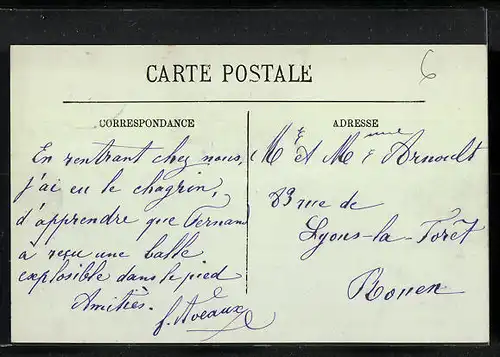 6
CARTE POSTALE
CORRESPONDANCE
ADRESSE
En rentrant chez nous,
j'ai eu le chagrin,
d'apprendre que Fernand
a reçu une balle
explosible dans le pied
Amitiés.
Mr et Mme Arnoult
83 rue de
Lyons-la-Foret
Rouen